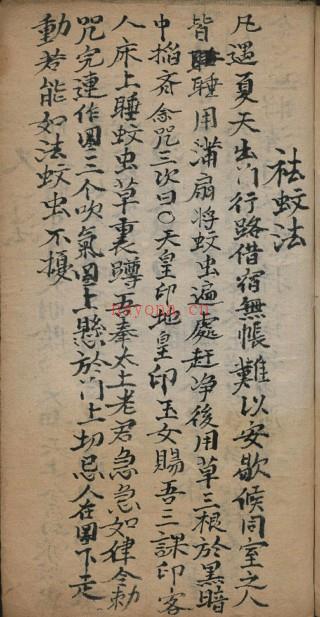 祛蚊法
凡遇夏天出門行路借宿無帳難以安歇候同室之人
皆睡睡用蒲扇將蚊虫遍處赶净後用草三根於黑暗
中掐斎念咒三次曰〇天皇印地皇印玉女賜吾三課印客
人床上睡蚊虫草裏蹲吾奉太上老君急急如律令勅
咒完連作圈三个吹氣圈上懸於门上切忌人在圈下走
動若能如法蚊虫不擾
nayona.cn